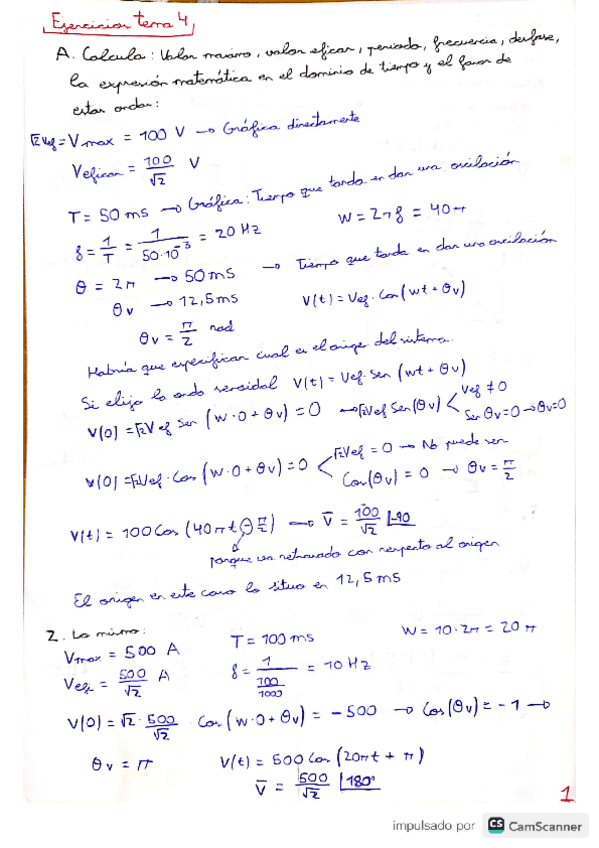 Ejercicios tema 4
A. Calcula: Valor maximo, valor eficaz, periodo, frecuencia, desfase,
la expresión matemática en el dominio de tiempo y el fasor de
estas ondas:
√2 Vef = Vmax = 100 V → Gráfica directamente
Veficaz = 100/√2 V
T = 50 ms → Gráfica: Tiempo que tarda en dar una oscilación
f = 1/T = 1/50·10⁻³ = 20 Hz W = 2πf = 40π
θ = 2π → 50 ms → Tiempo que tarda en dar una oscilación
θv → 12,5 ms V(t) = Vef · Cos(wt + θv)
θv = π/2 rad
Habría que especificar cual es el origen del sistema.
Si elijo la onda senoidal V(t) = Vef · Sen (wt + θv)
V(0) = √2 Vef Sen (W·0 + θv) = 0 → √2 Vef Sen(θv) < Vef ≠ 0
Sen θv = 0 → θv = 0
V(0) = √2 Vef · Cos (W·0 + θv) = 0 < √2 Vef = 0 → No puede ser
Cos(θv) = 0 → θv = π/2
V(t) = 100 Cos (40πt - π/2) → V̄ = 100/√2 |-90
porque va retrasado con respecto al origen
El origen en este caso lo situo en 12,5 ms
2. Lo mismo:
Vmax = 500 A T = 100 ms W = 10·2π = 20π
Vef = 500/√2 A f = 1/(100/1000) = 10 Hz
V(0) = √2 · 500/√2 Cos (w·0 + θv) = -500 → Cos(θv) = -1 →
θv = π V(t) = 500 Cos (20πt + π)
V̄ = 500/√2 |180°
1
impulsado por CS CamScanner